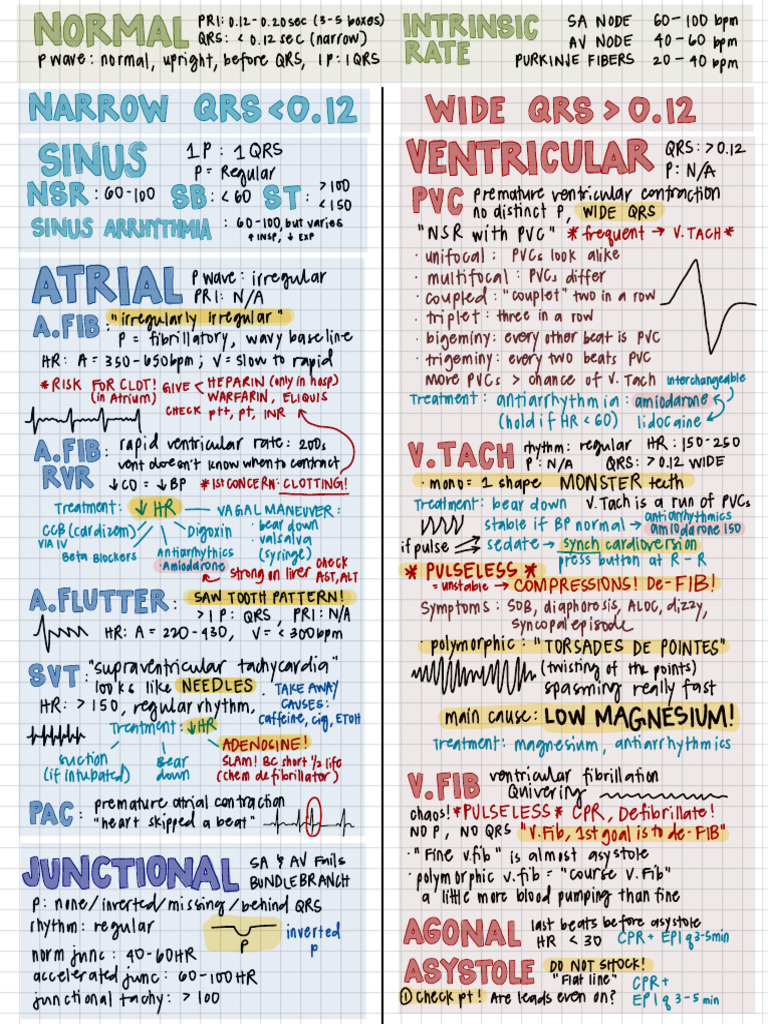 NORMAL
PRI: 0.12-0.20sec (3-5 boxes)
QRS: < 0.12 sec (narrow)
p wave: normal, upright, before QRS, 1P:1QRS
INTRINSIC RATE
SA NODE 60-100 bpm
AV NODE 40-60 bpm
PURKINJE FIBERS 20-40 bpm
NARROW QRS<0.12
SINUS
1P : 1 QRS
P = Regular
NSR: 60-100 SB: <60 ST: >100 <150
SINUS ARRHYTHMIA : 60-100, but varies
↑ INSP, ↓ EXP
ATRIAL
P wave: irregular
PRI: N/A
A.FIB: "irregularly irregular"
P = fibrillatory, wavy baseline
HR: A = 350-650bpm ; V = slow to rapid
*RISK FOR CLOT!
(in Atrium)
GIVE < HEPARIN (only in hosp)
WARFARIN, ELIQUIS
CHECK ptt, pt, INR
A.FIB RVR
: rapid ventricular rate: 200s
vent doesn't know when to contract
↓CO = ↓BP *1st CONCERN: CLOTTING!
Treatment: ↓HR
CCB (cardizem)
VIA IV
Beta Blockers
Antiarrhythics
Amiodarone
Digoxin
VAGAL MANEUVER:
· bear down
· valsalva
(syringe)
strong on liver CHECK
AST, ALT
A.FLUTTER: SAW TOOTH PATTERN!
>1P: QRS, PRI: N/A
HR: A = 220-430, V = <300bpm
SVT: "supraventricular tachycardia"
looks like NEEDLES.
HR: >150, regular rhythm,
TAKE AWAY
CAUSES:
caffeine, cig, ETOH
Treatment: ↓HR
suction
(if intubated)
Bear
down
ADENOSINE!
SLAM! BC short 1/2 life
(chem defibrillator)
PAC: premature atrial contraction
"heart skipped a beat"
JUNCTIONAL
SA & AV Fails
BUNDLE BRANCH
P: none/inverted/missing/behind QRS
rhythm: regular
P
inverted
p
norm junc : 40-60HR
accelerated junc: 60-100HR
junctional tachy: > 100
WIDE QRS > 0.12
VENTRICULAR
QRS: >0.12
P: N/A
PVC premature ventricular contraction
no distinct P, WIDE QRS
"NSR with PVC" *frequent → V.TACH*
· unifocal : PVCs look alike
· multifocal : PVCs differ
· coupled: "couplet" two in a row
· triplet: three in a row
· bigeminy: every other beat is PVC
· trigeminy: every two beats PVC
more PVCs > chance of V.Tach
interchangeable
Treatment: antiarrhythmia: amiodarone
(hold if HR <60) lidocaine
V.TACH rhythm: regular HR: 150-250
P: N/A QRS: >0.12 WIDE
· mono = 1 shape MONSTER teeth
Treatment: bear down V.Tach is a run of PVCs
stable if BP normal → antiarrhythmics
amiodarone 150
if pulse → sedate → synch cardioversion
press button at R-R
* PULSELESS *
= unstable → COMPRESSIONS! DE-FIB!
Symptoms: SOB, diaphoresis, ALOC, dizzy,
syncopal episode
· polymorphic : "TORSADES DE POINTES"
(twisting of the points)
spasming really fast
main cause: LOW MAGNESIUM!
Treatment: magnesium, antiarrhythmics
V.FIB ventricular fibrillation
Quivering
chaos! *PULSELESS* CPR, Defibrillate!
NO P, NO QRS "V.Fib, 1st goal is to de-FIB"
· "Fine v.fib" is almost asystole
· polymorphic v.fib = "course V.Fib"
a little more blood pumping than fine
AGONAL last beats before asystole
HR < 30 CPR+ EPI q3-5min
ASYSTOLE DO NOT SHOCK!
"Flat line" CPR+
① Check pt! Are leads even on? EPI q 3-5 min